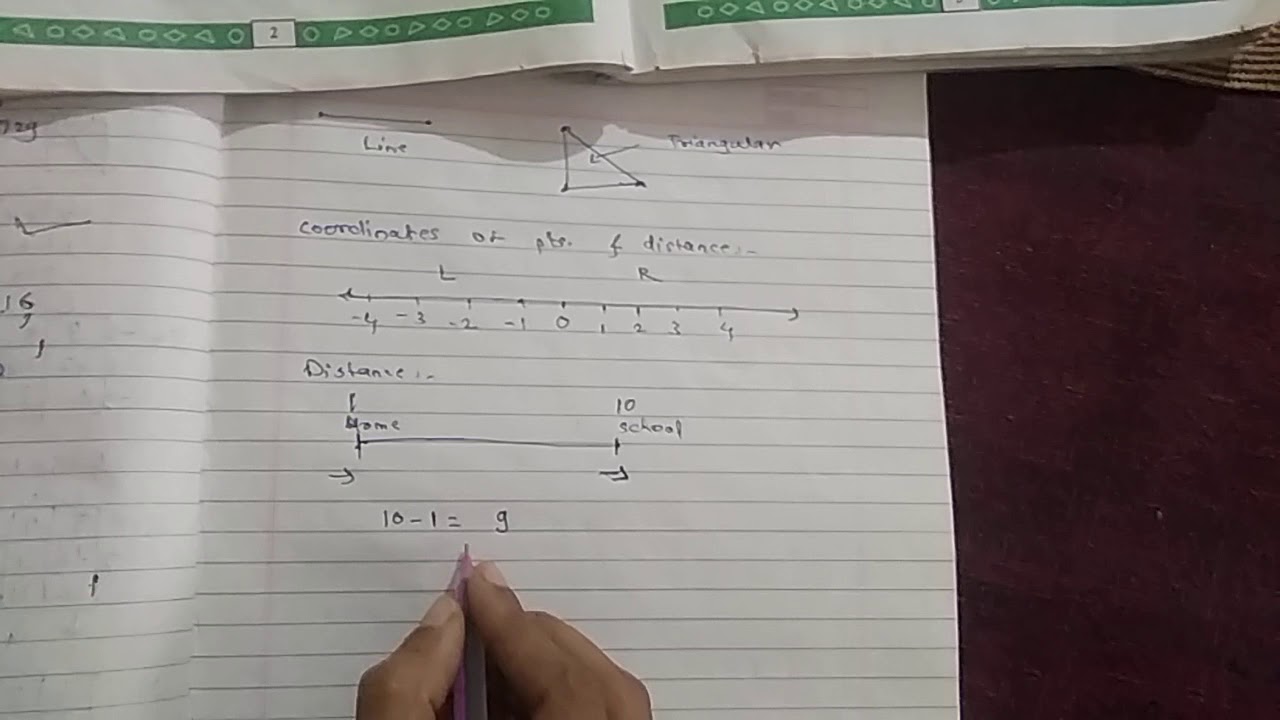 2
729
Line
Triangular
16
9
Coordinates of pts. & distance:-
L R
-4 -3 -2 -1 0 1 2 3 4
Distance:-
1 10
Home school
10-1= 9